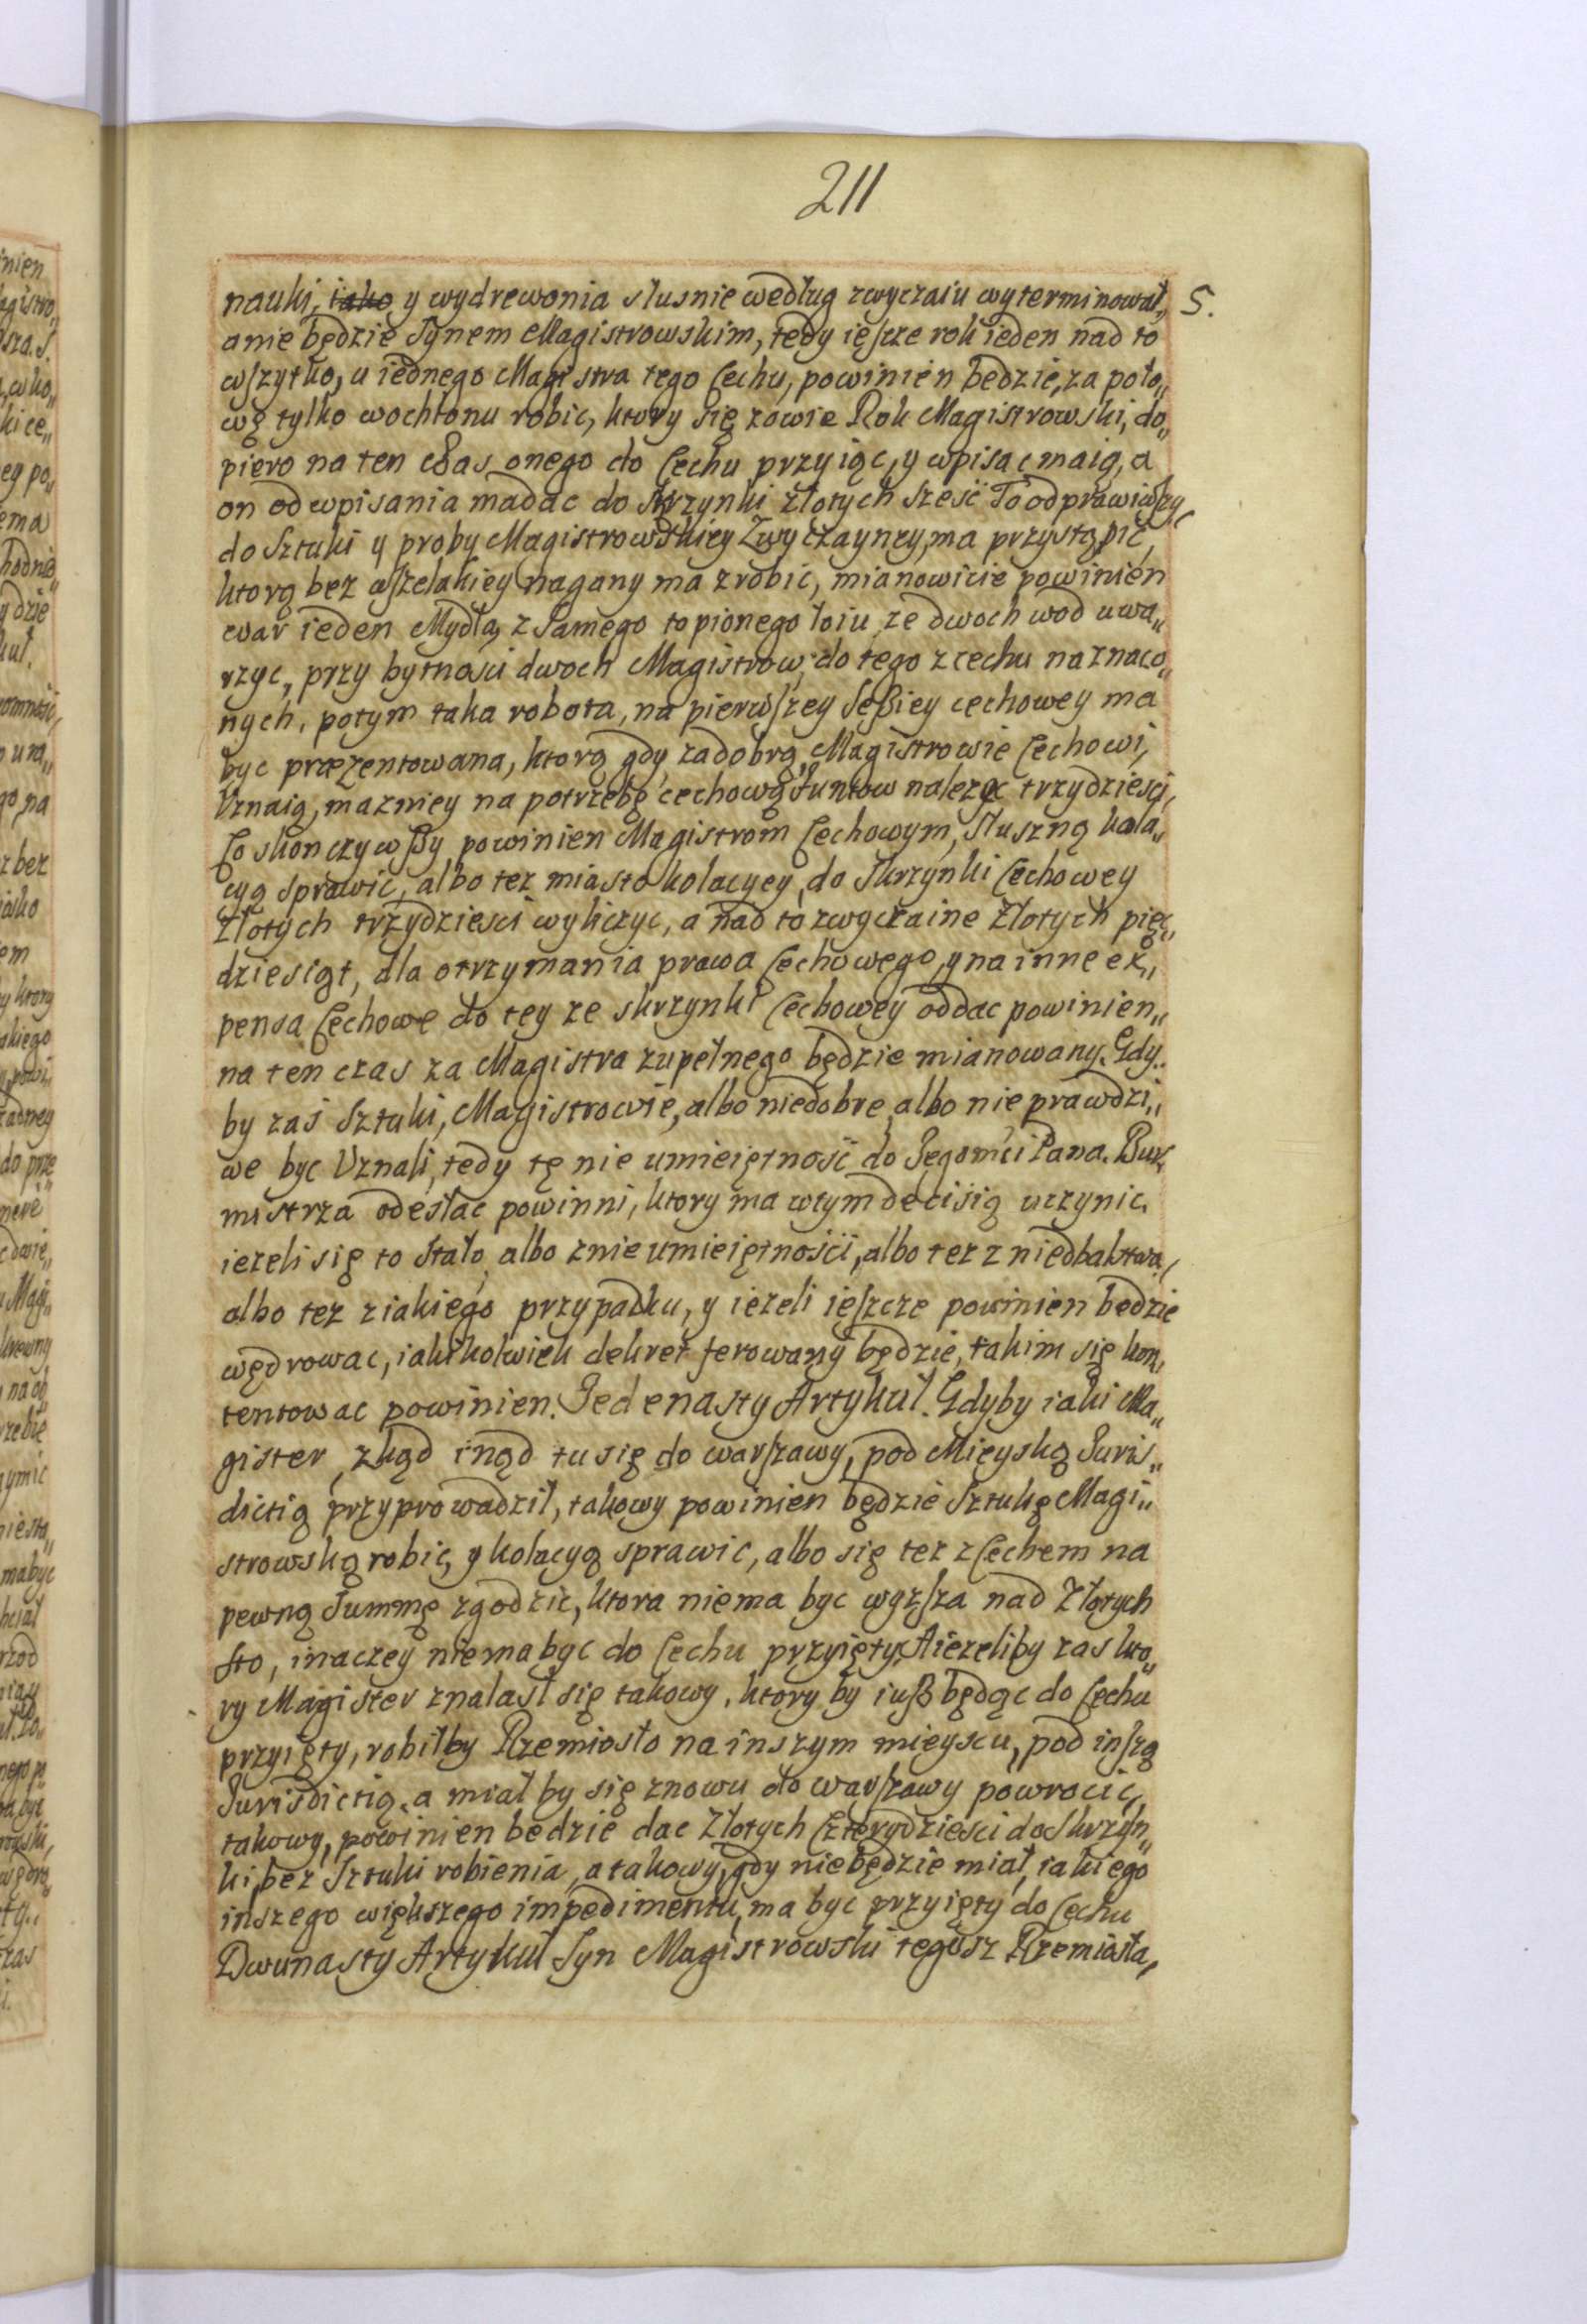 211
nauki, iako y wydrewonia slusnie według zwyczaiu wyterminował„ 5.
anie będzie Synem Magistrowskim, tedy ięszcze rok ieden nad to
wszytko, u iednego Magistra tego Cechu, powinien bedzie, za poło„
wę tylko wochlonu robic, ktory się zowie Rok Magistrowski, do„
piero na ten czas onego do Cechu przyiąc, y wpisac maią, a
on od wpisania ma dac do Skrzynki złotych sześć To odprawiwszy,
do Sztuki y proby Magistrowskiey Zwyczayney, ma przystąpic,
ktorą bez wszelakiey nagany ma zrobic, mianowicie powinien
war ieden Mydła, z Samego topionego łoiu ze dwoch wod uwa„
rzyc, przy bytnosci dwoch Magistrow, do tego z cechu naznaco„
nych, potym taka robota, na pierwszey Seßiey cechowey ma
byc præzentowana, ktorą gdy za dobrą, Magistrowie Cechowi,
Vznaią, ma zniey na potrzebę cechową Funtow nalezec trzydziesci,
Co skonczywßy powinien Magistrom Cechowym, Słuszną kola„
cyą Sprawic, albo tez miasto kolacyey, do Skrzynki Cechowey
Złotych trzydziesci wyliczyc, a nad to zwyczaine Złotych pięc„
dziesiąt, dla otrzymania prawa Cechowego, y na inne ex„
pensa Cechowe do tey ze skrzynki Cechowey oddac powinien„
na ten czas za Magistra zupełnego będzie mianowany. Gdy„
by zaś Sztuki, Magistrowie, albo niedobre, albo nie prawdzi„
we byc Vznali, tedy tę nie umieiętność do Jegomci Pana. Bur„
mistrza odesłac powinni, ktory ma wtym decisią uczynic.
iezeli się to Stało, albo z nie umieiętności, albo tez z niedbalstwa,
albo tez z iakiego przypadku, y iezeli ięszcze powinien będzie
wędrowac, iakikolwiek dekret ferowany będzie, takim się kon„
tentowac powinien. Jedenasty Artykuł. Gdyby iaki Ma„
gister, zkąd inąd tu się do warszawy, pod Mieyską Juris„
dictią przyprowadził, takowy powinien będzie Sztukę Magi„
strowską robic, y kolacyą sprawic, albo się tez z Cechem na
pewną Summę zgodzic, ktora nie ma byc wyzsza nad Złotych
sto, inaczey nie ma byc do Cechu przyięty. Aiezeliby zas kto„
ry Magister znalasł się takowy, ktory by iuß będąc do Cechu
przyięty, robiłby Rzemiosło na inszym mieyscu, pod inszą
Jurisdictią, a miał by się znowu do warszawy powrocic,
takowy, powinien bedzie dac Złotych Czterydziesci do Skrzyn„
ki, bez Sztuki robienia, a takowy, gdy nie będzie miał, iakiego
inszego większego impedimentu, ma byc przyięty do Cechu
Dwunasty Artykuł Syn Magistrowski tegosz Rzemiosła,